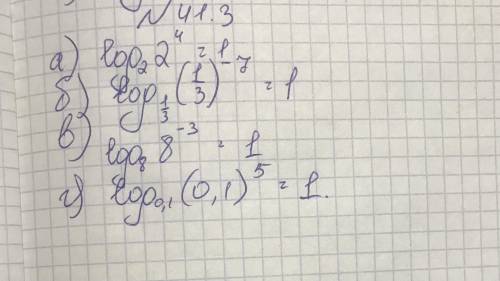 №41.3
а) log₂ 2⁴ = 1
б) log_{1/3} (1/3)⁻⁷ = 1
в) log₈ 8⁻³ = 1
г) log₀,₁ (0,1)⁵ = 1.